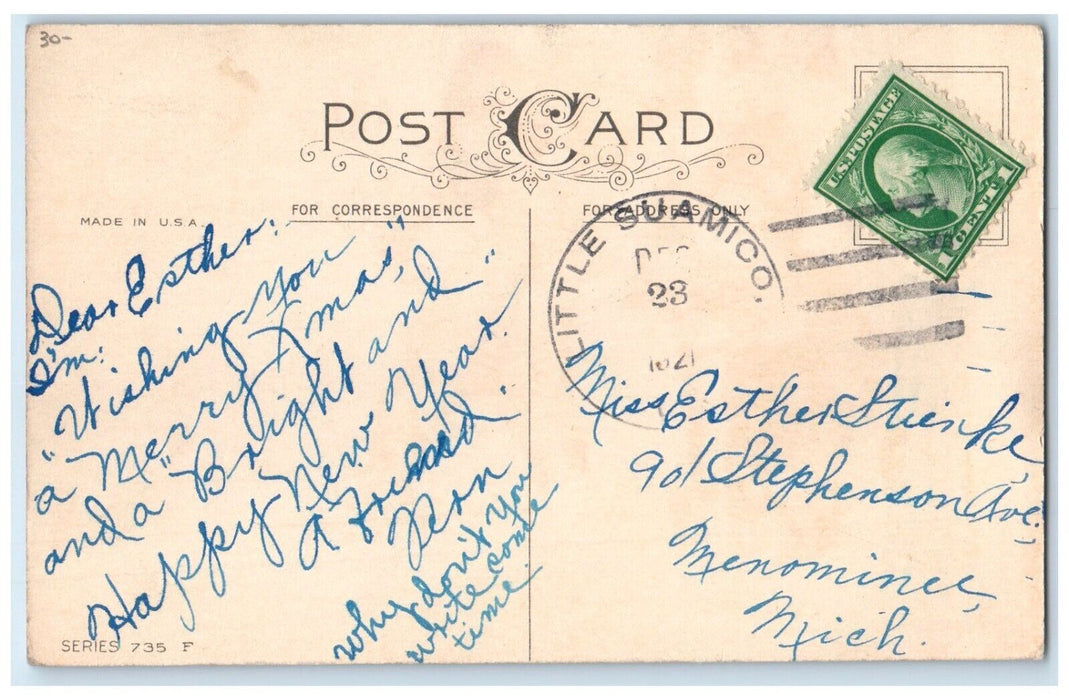 30-
POST CARD
U.S. POSTAGE
1 CENT 1
MADE IN U.S.A.
FOR CORRESPONDENCE
FOR ADDRESS ONLY
LITTLE SUAMICO,
DEC
23
1921
Dear Esther:
I'm:
"Wishing You
a "Merry Xmas,"
and a "Bright and"
Happy New Year.
A Friend:
Why don't you
write some
time.
Miss Esther Stienke,
901 Stephenson Ave.,
Menominee,
Mich.
SERIES 735 F